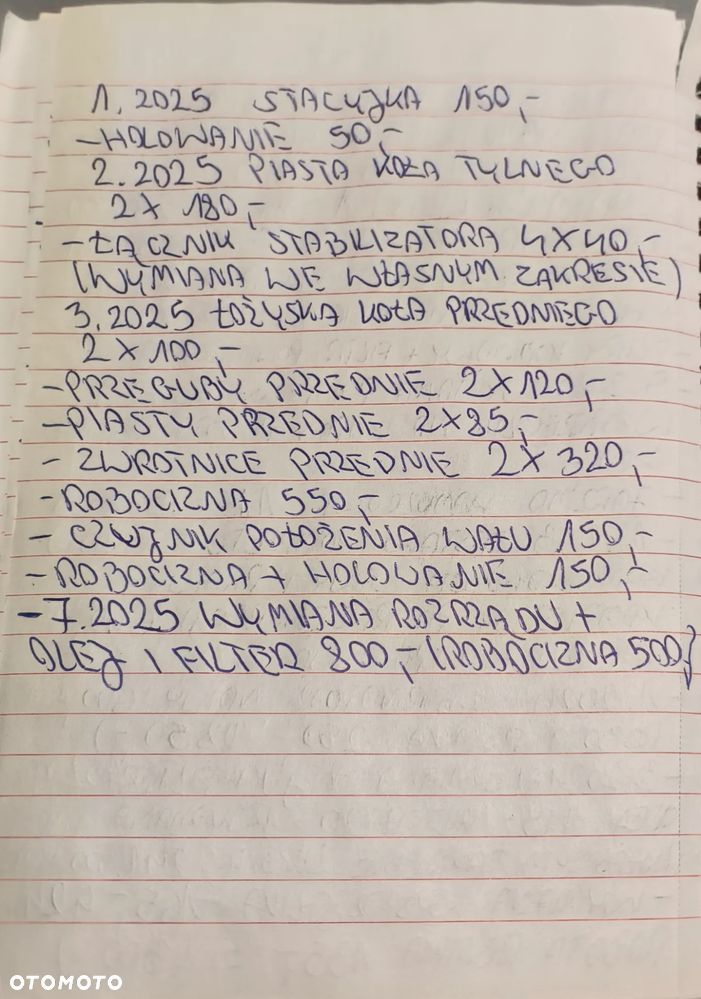 1.2025 STACYJKA 150,-
-HOLOWANIE 50,-
2.2025 PIASTA KOŁA TYLNEGO
2X 180,-
-ŁĄCZNIK STABILIZATORA 4X40,-
(WYMIANA WE WŁASNYM ZAKRESIE)
3.2025 ŁOŻYSKA KOŁA PRZEDNIEGO
2X100,-
-PRZEGUBY PRZEDNIE 2X120,-
-PIASTY PRZEDNIE 2X85,-
- ZWROTNICE PRZEDNIE 2X320,-
-ROBOCIZNA 550,-
- CZUJNIK POŁOŻENIA WAŁU 150,-
-ROBOCIZNA + HOLOWANIE 150,-
-7.2025 WYMIANA ROZRZĄDU +
OLEJ I FILTER 800,- (ROBOCIZNA 500)
OTOMOTO